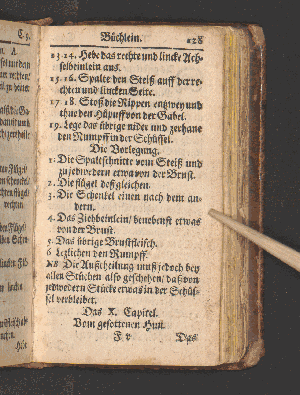 Büchlein. 128
13. 14. Hebe das rechte und lincke Ach-
selbeinlein aus.
15. 16. Spalte den Steiß auff der re-
chten und lincken Seite.
17 18. Stoß die Rippen entzwey und
thue den Hüpuff von der Gabel.
19. Lege das übrige nider und zerhaue
den Rumpff in der Schüssel.
Die Vorlegung.
1. Die Spaltschnitte vom Steiß und
zu jedwedern etwa von der Brust.
2. Die Flügel deßgleichen.
3. Die Schenckel einen nach dem an-
dern.
4. Das Ziehbeinlein / benebenst etwas
von der Brust.
5. Das übrige Brustfleisch.
6 Letzlichen den Rumpff.
NB Die Außtheilung muß jedoch bey
allen Stücken also geschehen / daß von
jedwedern Stücke etwas in der Schüs-
sel verbleibet.
Das X. Capitel.
Vom gesottenen Hun.
F v Das